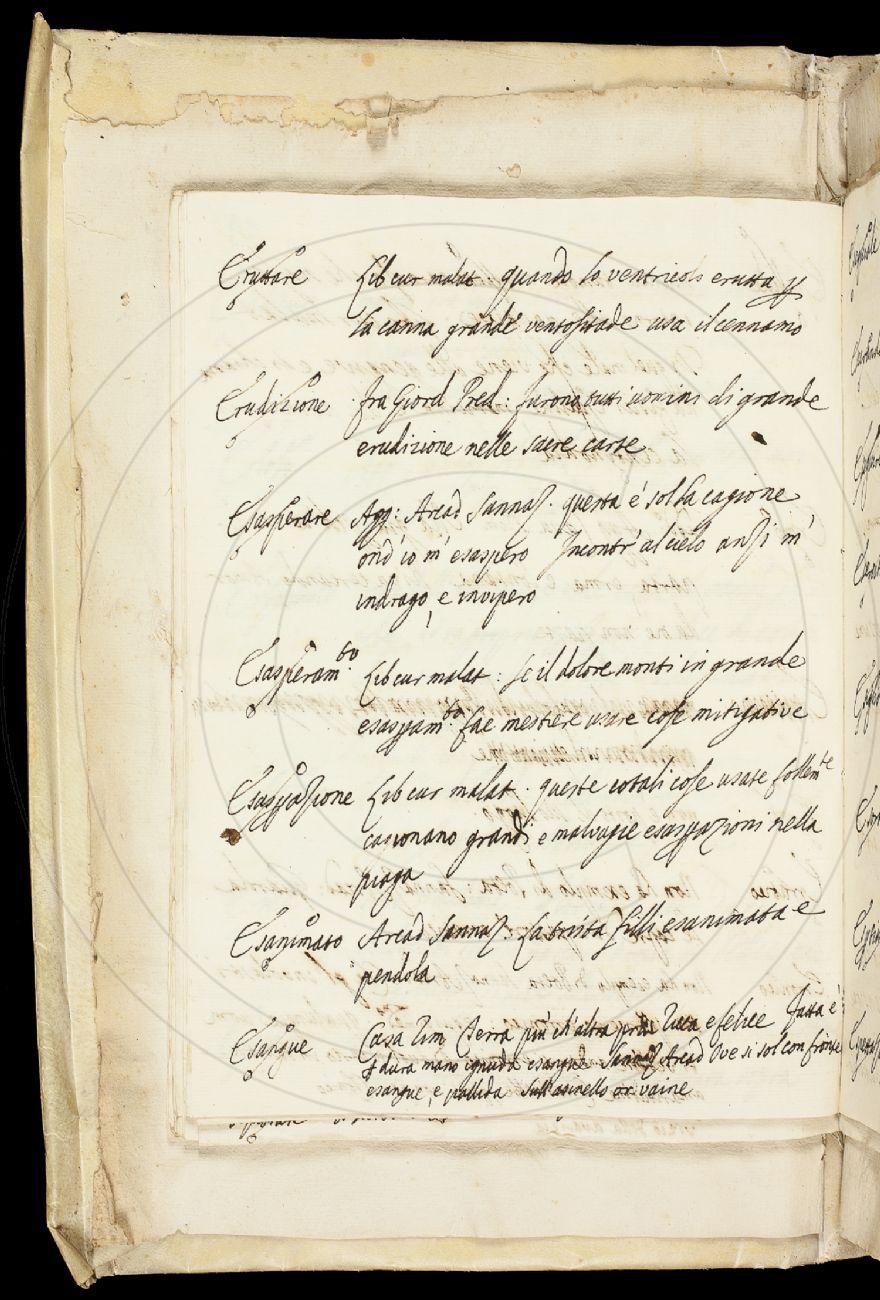 Eruttare Lib cur malat. quando lo ventricolo erutta p
la canna grande ventositade usa il cennamo
Erudizione fra Giord Pred: furono tutti uomini di grande
erudizione nelle sacre carte
Esasperare Agg: Arcad Sannaz. questa é sol la cagione
ond'io m'esaspero Incontr'al cielo anzi m'
indrago, e invipero
Esasperam.to Lib cur malat: se il dolore monti in grande
esaspam.to fae mestiere usare cose mitigative
Esaspazione Lib cur malat. queste cotali cose usate follem.te
casionano grandi e malvagie esaspazioni nella
piaga
Esanimato Arcad Sannaz: La trista Filli esanimata e
pendola
Esangue Casa Rim Terra più ch'altra pria ricca e felice fatta é
p dura mano ignuda esangue Sannaz Arcad Ove si sol con fronte
esangue, e pallida sull'asinello or vaine